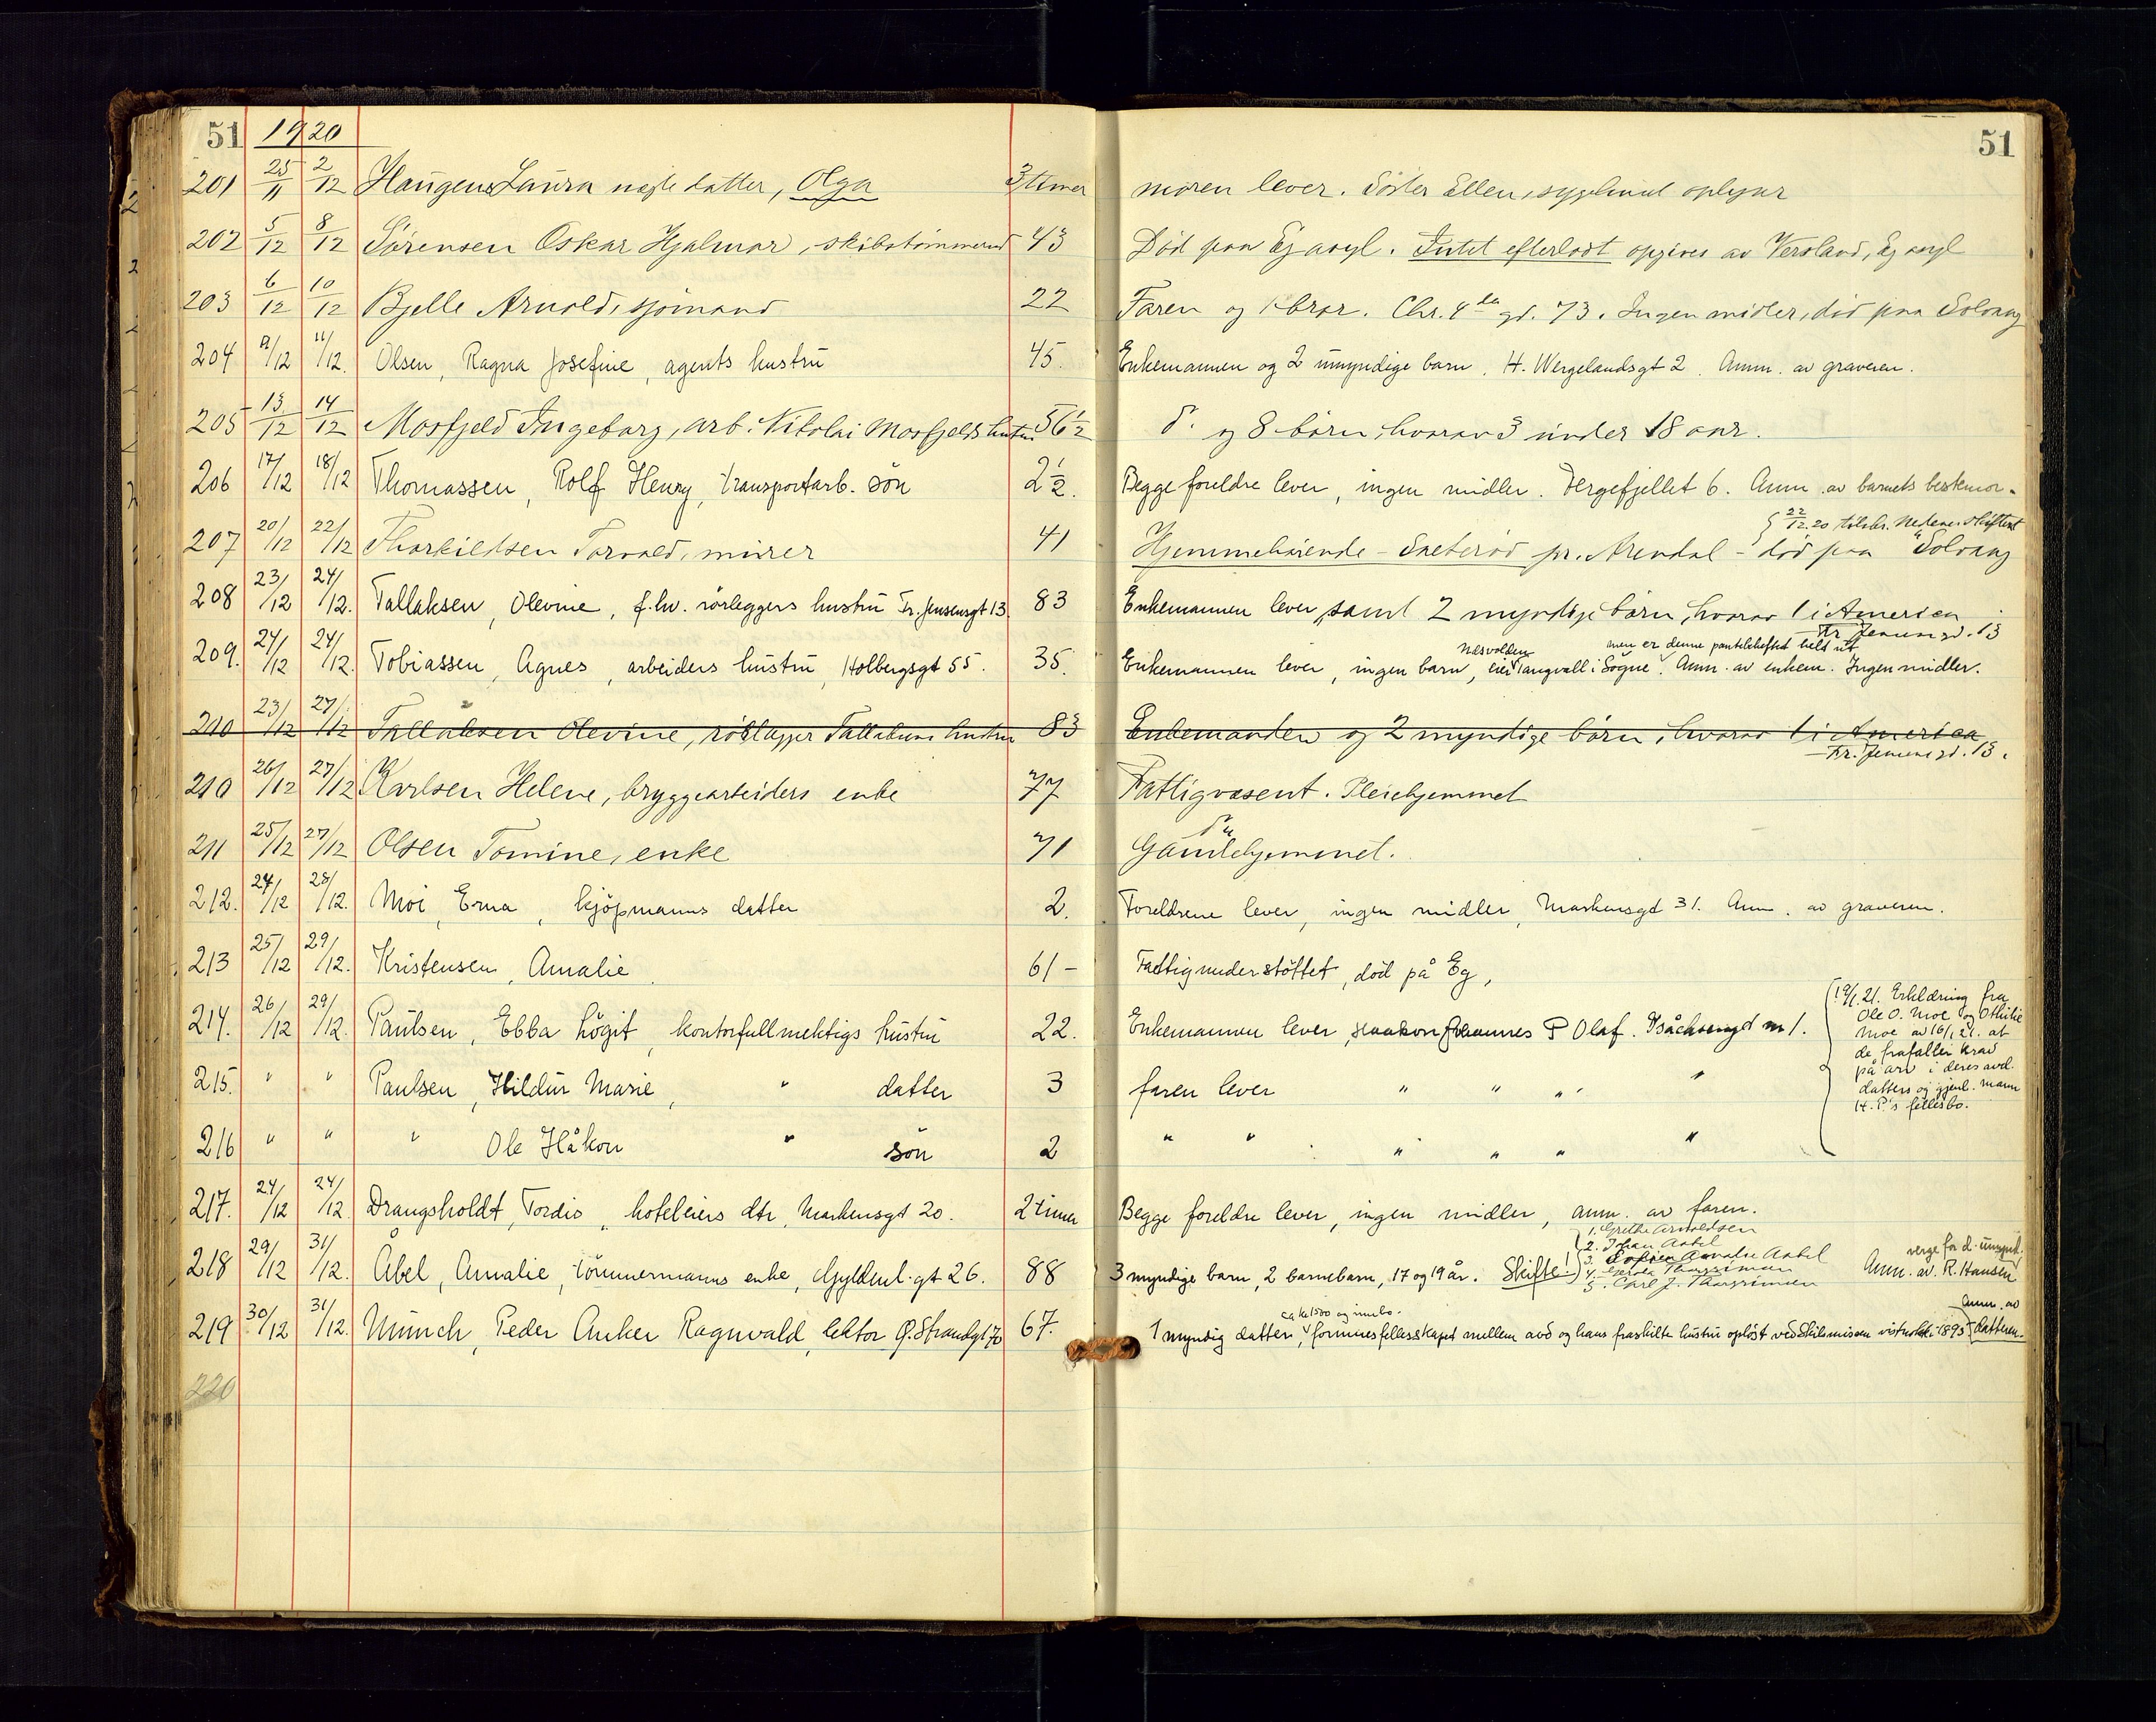 51 1920 51
201 25/11 2/12 Haugen Laura uegte datter, Olga 3 timer moren lever. Söster Ellen, sygehuset oplyser
202 5/12 8/12 Sörensen Oskar Hjalmar, skibstömmermd 43 Död paa Eg asyl. Intet efterladt opgives av Versland, Eg asyl
203 6/12 10/12 Bjelle Arnold, sjömand 22 Faren og 1 bror. Chr. 4de gd. 73. Ingen midler, död paa Solvang
204 9/12 11/12. Olsen, Ragna Josefine, agents hustru 45. Enkemannen og 2 umyndige barn. H. Wergelandsgt 2. Anm. av graveren.
205 13/12 14/12 Mosfjeld Ingeborg, arb. Nikolai Mosfjelds hustru 56 1/2 d. og 8 börn, hvorav 3 under 18 aar.
206 17/12 18/12 Thomassen, Rolf Henry, transportarb. sön 2 1/2. Begge foreldre lever, ingen midler. Vergefjellet 6. Anm av barnets bestemor.
22/12.20 tilskr. Nedenes skifteret
207 20/12 22/12 Thorkildsen Torvald, murer 41 Hjemmehörende - Saeteröd pr. Arendal - död paa Solvang
208 23/12 24/12. Tallaksen, Olevine, f.hv. rörleggers hustru Fr. Jensensgt 13. 83 Enkemannen lever, samt 2 myndige börn, hvorav 1 i America
Fr. Jensens gd. 13
Næsvolden men er denne panteheftet helt ut
209. 24/12 24/12. Tobiassen, Agnes, arbeiders hustru, Holbergsgt 55. 35. Enkemannen lever, ingen barn, eier Tangvall i Søgne. Anm. av enkem. Ingen midler.
210 23/12 27/12 Tallaksen Olevine, rörlægger Tallaksens hustru 83 Enkemanden og 2 myndige börn, hvorav 1 i America
Fr. Jensens gd. 13.
210 26/12 27/12 Karlsen Helene, bryggearbeiders enke 77 Fattigvæsent. Pleiehjemmet
211 25/12 27/12 Olsen Tomine, enke 71 Do Gamlehjemmet.
212. 24/12 28/12. Moi, Erna, kjöpmanns datter 2. Foreldrene lever, ingen midler, Markensgt 31. Anm. av graveren.
213 25/12 29/12. Kristensen, Amalie 61 - Fattigunderstöttet, död på Eg,
214. 26/12 29/12. Paulsen, Ebba Högit, kontorfullmektigs hustru 22. Enkemannen lever, Haakon Johannes P Olaf. Isachsensgt nr 1.
19/1.21. Erklæring fra
Ole O. Moe og Othilie
Moe av 16/1.21. at
de frafaller krav
på arv i deres avd.
datters og gjenl. mann
H. P.'s fellesbo.
215. " " Paulsen, Hildur Marie, " datter 3 faren lever " " " "
216 " " " Ole Håkon " sön 2 " " " " " "
217. 24/12 24/12. Drangsholdt, Tordis, hoteleiers dtr, Markensgt 20. 2 timer Begge foreldre lever, ingen midler, anm. av faren.
1. Grethe Arnoldsen
2. Johan Aabel
3. Sofien Amalie Aabel
4. Thorgrimsen
5. Carl J. Thorgrimsen
218 29/12 31/12. Åbel, Amalie, tömmermanns enke, Gyldenl. gt 26. 88 3 myndige barn, 2 barnebarn, 17 og 19 år. Skifte! Anm. av. R. Hansen verge for d. umynd.
ca kr 1500 og innbo.
219 30/12 31/12. Münch, Peder Anker Ragnvald, lektor Ø. Strandgt 70 67. 1 myndig datter, formuesfellesskapet mellem avd og hans fraskilte hustru oplöst ved skilsmissen vistnok i 1895 Anm. av datteren.
220